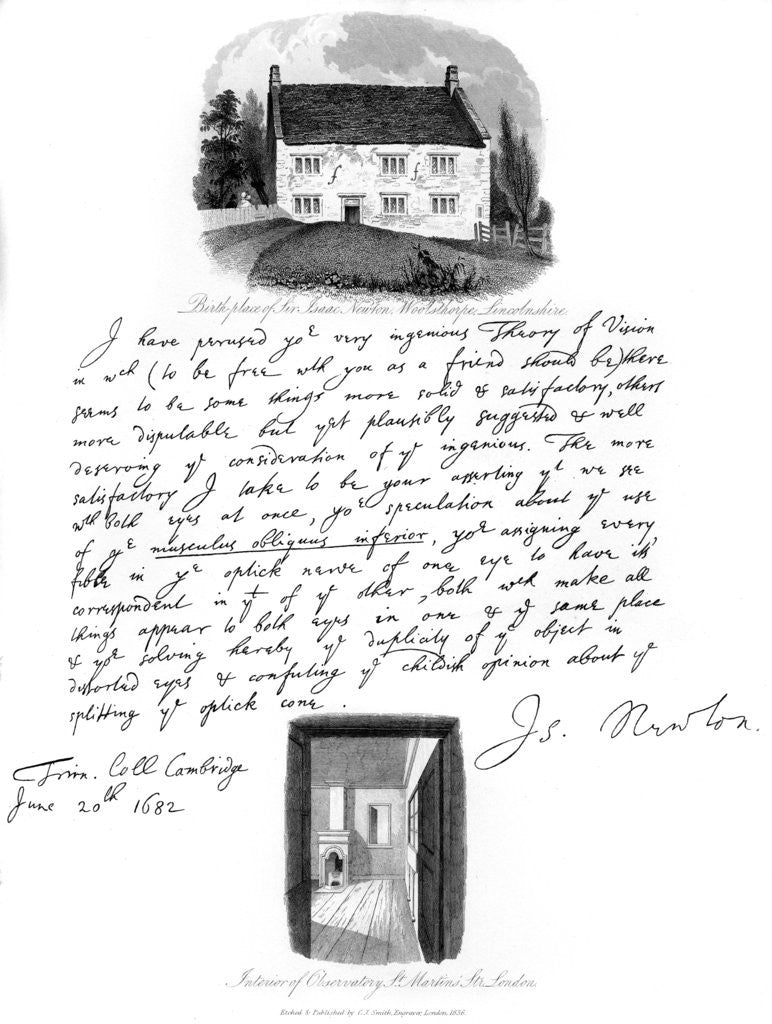 Birth-place of Sir Isaac Newton, Woolsthorpe, Lincolnshire.
I have perused yor very ingenious Theory of Vision
in wch (to be free wth you as a friend should be) there
seems to be some things more solid & satisfactory, others
more disputable but yet plausibly suggested & well
deserving ye consideration of ye ingenious. The more
satisfactory I take to be your asserting yt we see
wth both eyes at once, yor speculation about ye use
of ye musculus obliquus inferior, yor assigning every
fibre in ye optick nerve of one eye to have its
correspondent in yt of ye other, both wch make all
things appear to both eyes in one & ye same place
& yor solving hereby ye duplicity of ye object in
distorted eyes & confuting ye childish opinion about ye
splitting ye optick cone.
Is. Newton.
Trin. Coll Cambridge
June 20th 1682
Interior of Observatory, St. Martin's Str. London.
Etched & Published by C.J. Smith, Engraver, London, 1836.